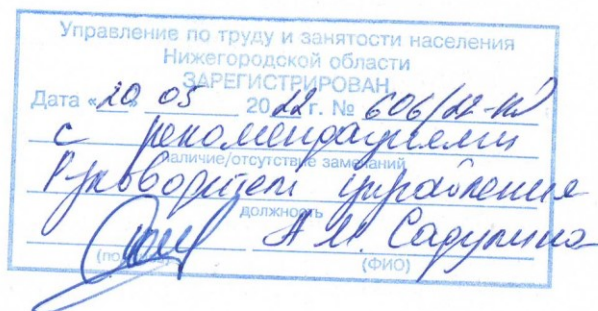 Управление по труду и занятости населения
Нижегородской области
ЗАРЕГИСТРИРОВАН
Дата «20» 05 2022 г. № 606/22-КД
с рекомендациями
наличие/отсутствие замечаний
Руководитель управления
должность
А.М. Садулина
(подпись) (ФИО)